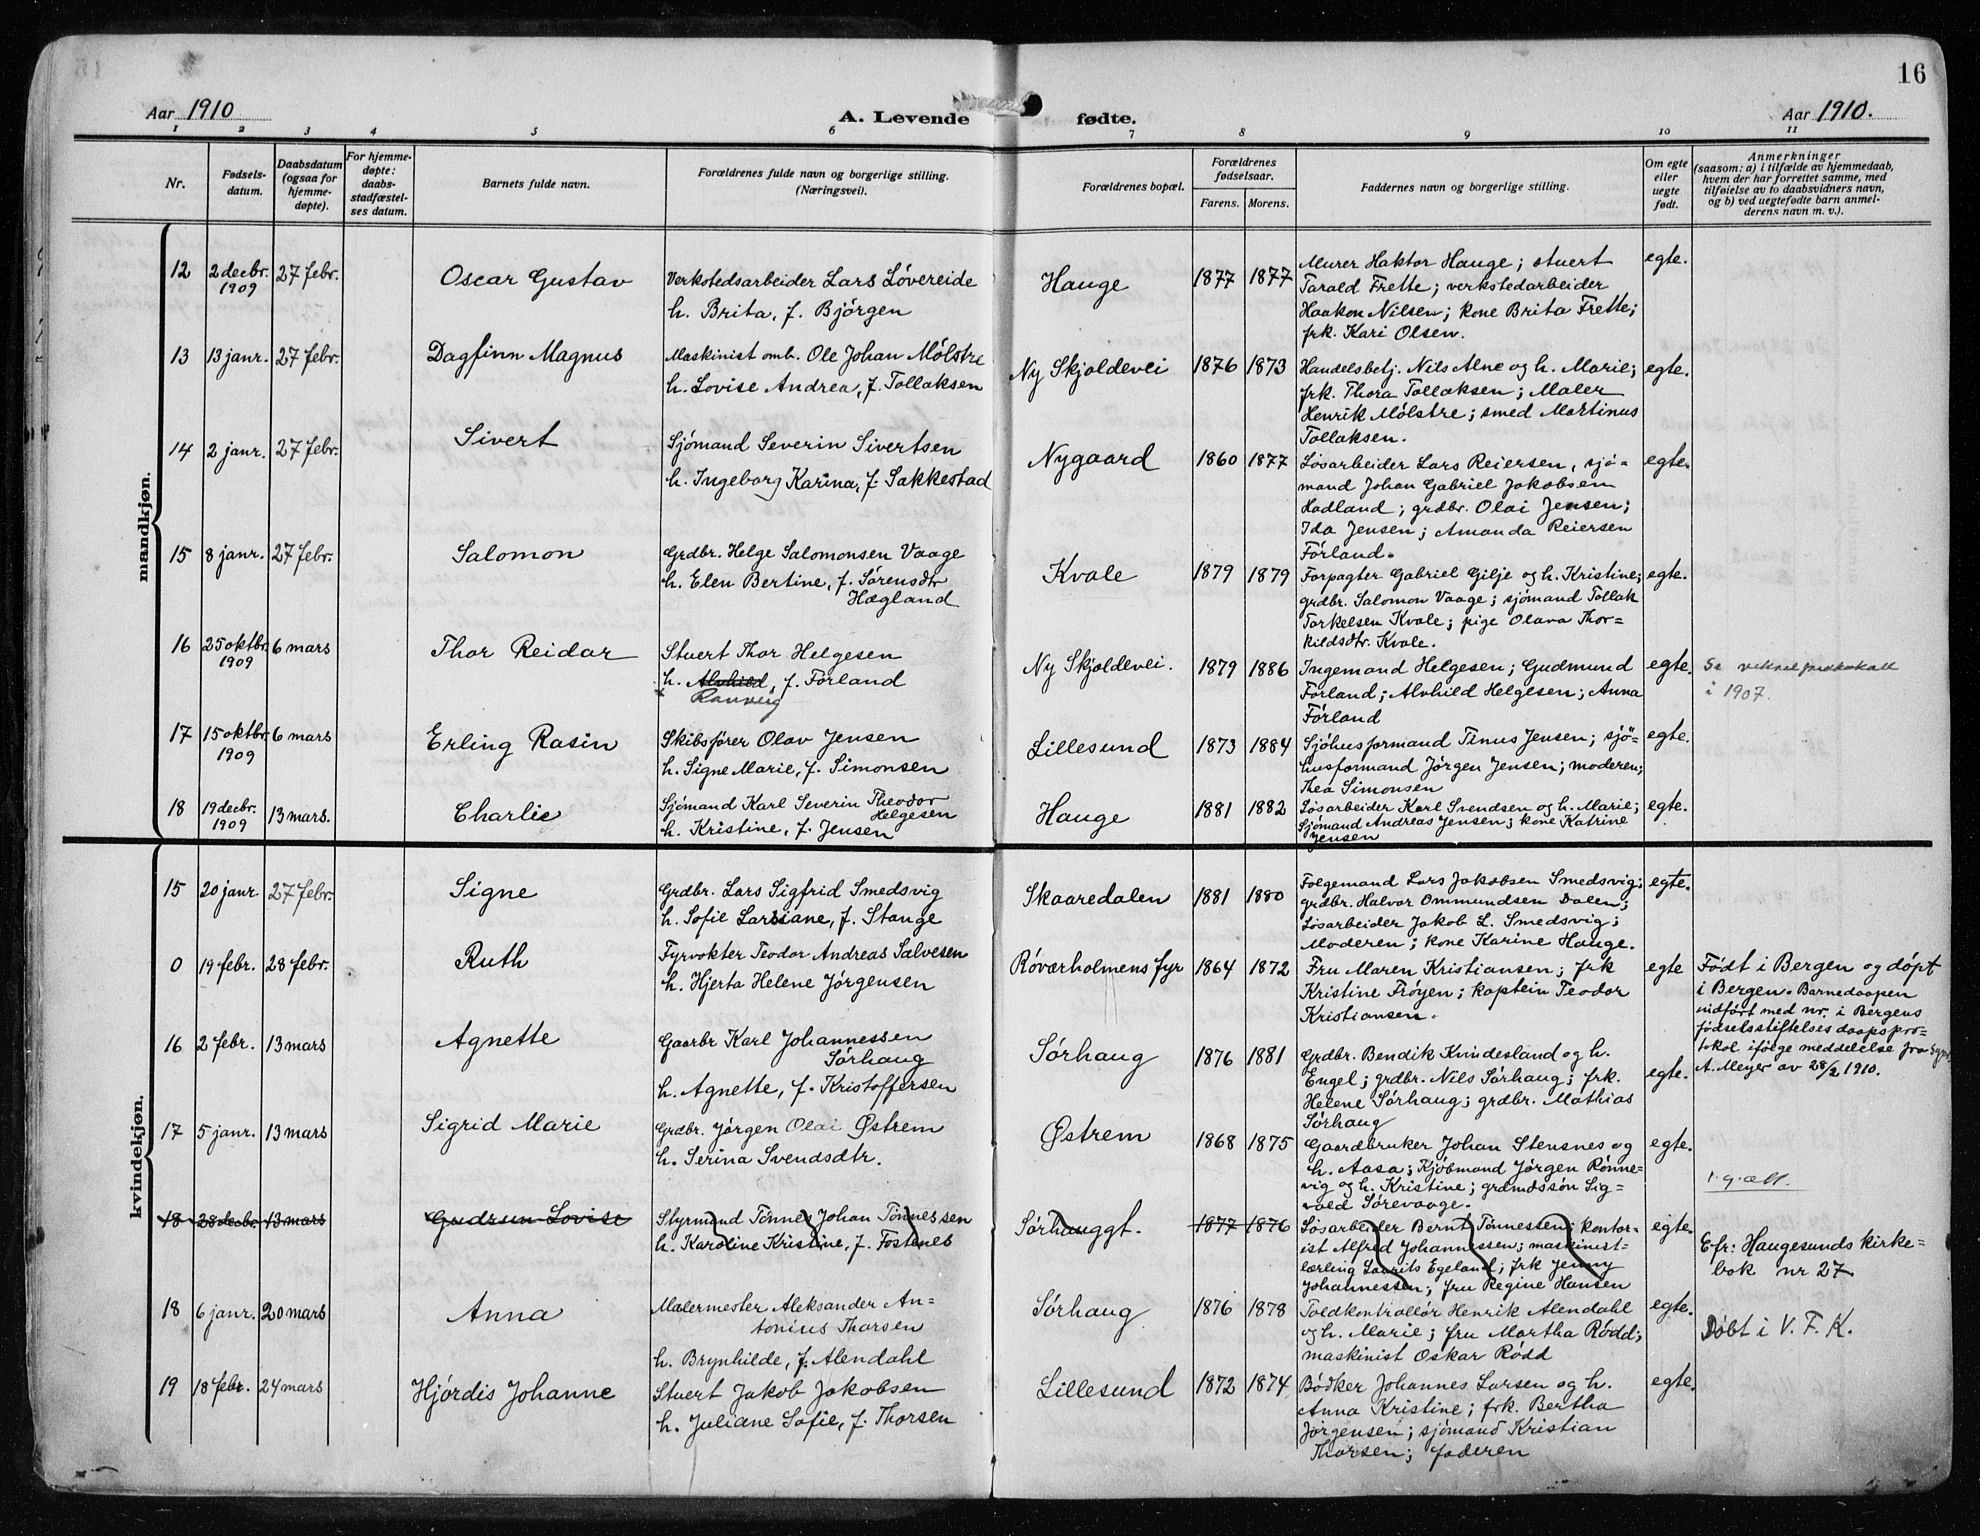 16
Aar 1910
A. Levende
fødte.
Aar 1910.
1 2 3 4 5 6 7 8 9 10 11
Nr.
Fødsels-
datum.
Daabsdatum
(ogsaa for
hjemme-
døpte).
For hjemme-
døpte:
daabs-
stadfæstel-
ses datum.
Barnets fulde navn.
Forældrenes fulde navn og borgerlige stilling.
(Næringsvei).
Forældrenes bopæl.
Forældrenes
fødselsaar.
Farens. Morens.
Faddernes navn og borgerlige stilling.
Om egte
eller
uegte
født.
Anmerkninger
(saasom: a) i tilfælde av hjemmedaab,
hvem der har forrettet samme, med
tilføielse av to daabsvidners navn,
og b) ved uegtefødte barn anmel-
derens navn m. v.).
mandkjøn.
12 2 decbr. 27 febr.
1909
Oscar Gustav
Verkstedsarbeider Lars Løvereide
h. Brita, f. Bjørgen
Hauge 1877 1877
Murer Haktor Hauge; stuert
Tarald Frette; verkstedarbeider
Haakon Nilsen; kone Brita Frette;
frk. Kari Olsen.
egte.
13 13 janr. 27 febr.
Dagfinn Magnus
Maskinist omb. Ole Johan Mølstre
h. Lovise Andrea, f. Tollaksen
Ny Skjoldevei 1876 1873
Handelsbetj. Nils Alne og h. Marie;
frk. Thora Tollaksen; Maler
Henrik Mølstre; smed Martinus
Tollaksen.
egte.
14 2 janr. 27 febr.
Sivert
Sjømand Severin Sivertsen
h. Ingeborg Karina, f. Sakkestad
Nygaard 1860 1877
Løsarbeider Lars Reiersen, sjø-
mand Johan Gabriel Jakobsen
Hadland; grdbr. Olai Jensen;
Ida Jensen; Amanda Reiersen
Førland.
egte.
15 8 janr. 27 febr.
Salomon
Grdbr. Helge Salomonsen Vaage
h. Elen Bertine, f. Sørensdtr
Hægland
Kvale 1879 1879
Forpagter Gabriel Gilje og h. Kristine;
grdbr. Salomon Vaage; sjømand Tollak
Torkelsen Kvale; pige Olava Thor-
kildsdtr. Kvale.
egte.
16 25 oktbr. 6 mars
1909
Thor Reidar
Stuert Thor Helgesen
h. Alvhild, f. Førland
Ranveig
Ny Skjoldevei. 1879 1886
Ingemand Helgesen; Gudmund
Førland; Alvhild Helgesen; Anna
Førland
egte.
Se vekselprotokoll
i 1907.
17 15 oktbr. 6 mars
1909
Erling Rasin
Skibsfører Olav Jensen
h. Signe Marie, f. Simonsen
Lillesund 1873 1884
Sjøhusformand Tinus Jensen; sjø-
husformand Jørgen Jensen; moderen;
Thea Simonsen
egte.
18 19 decbr. 13 mars.
1909
Charlie
Sjømand Karl Severin Theodor
Helgesen
h. Kristine, f. Jensen
Hauge 1881 1882
Løsarbeider Karl Svendsen og h. Marie;
Sjømand Andreas Jensen; kone Katrine
Jensen
egte.
kvindekjøn.
15 20 janr. 27 febr.
Signe
Grdbr. Lars Sigfrid Smedsvig
h. Sofie Larsiane, f. Stange
Skaaredalen 1881 1880
Følgemand Lars Jakobsen Smedsvig;
grdbr. Halvor Ommundsen Dalen;
Løsarbeider Jakob L. Smedsvig;
Moderen; kone Karine Hauge.
egte.
0 19 febr. 28 febr.
Ruth
Fyrvokter Teodor Andreas Salvesen
h. Hjerta Helene Jørgensen
Røværholmens fyr 1864 1872
Fru Maren Kristiansen; frk
Kristine Frøyen; kaptein Teodor
Kristiansen.
egte
Født i Bergen og døpt
i Bergen. Barnedaapen
indført med nr. i Bergens
fødselsstiftelses daapspro-
tokol ifølge meddelelse fra
A. Meyer av 28/2 1910.
16 2 febr. 13 mars
Agnette
Gaarbr Karl Johannessen
Sørhaug
h. Agnette, f. Kristoffersen
Sørhaug 1876 1881
Grdbr. Bendik Kvindesland og h.
Engel; grdbr. Nils Sørhaug; frk.
Helene Sørhaug; grdbr. Mathias
Sørhaug
egte.
17 5 janr. 13 mars
Sigrid Marie
Grdbr. Jørgen Olai Østrem
h. Serina Svendsdtr.
Østrem 1868 1875
Gaardbruker Johan Stensnes og
h. Aasa; Kjøbmand Jørgen Rønne-
vig og h. Kristine; grdmdssøn Sig-
vald Sørevaage.
egte.
18 28 decbr. 13 mars
Gudrun Lovise
Styrmand Tønnes Johan Tønnessen
h. Karoline Kristine, f. Fostenes
Sørhauggt. 1877 1876
Løsarbeider Bernt Tønnessen; kontor-
ist Alfred Johannessen; maskinist-
lærling Laurits Egeland; frk Jenny
Johannessen; fru Regine Hansen
egte.
Efr: Haugesunds kirke-
bok nr 27
18 6 janr. 20 mars
Anna
Malermester Aleksander An-
tonius Thorsen
h. Brynhilde, f. Alendahl
Sørhaug 1876 1878
Toldkontrollør Henrik Alendahl
og h. Marie; fru Martha Rødd;
maskinist Oskar Rødd
egte.
Døbt i V. F. K.
19 18 febr. 24 mars
Hjørdis Johanne
Stuert Jakob Jakobsen
h. Juliane Sofie, f. Thorsen
Lillesund 1872 1874
Bødker Johannes Larsen og h.
Anna Kristine; frk. Bertha
Jørgensen; sjømand Kristian
Thorsen; faderen
egte.